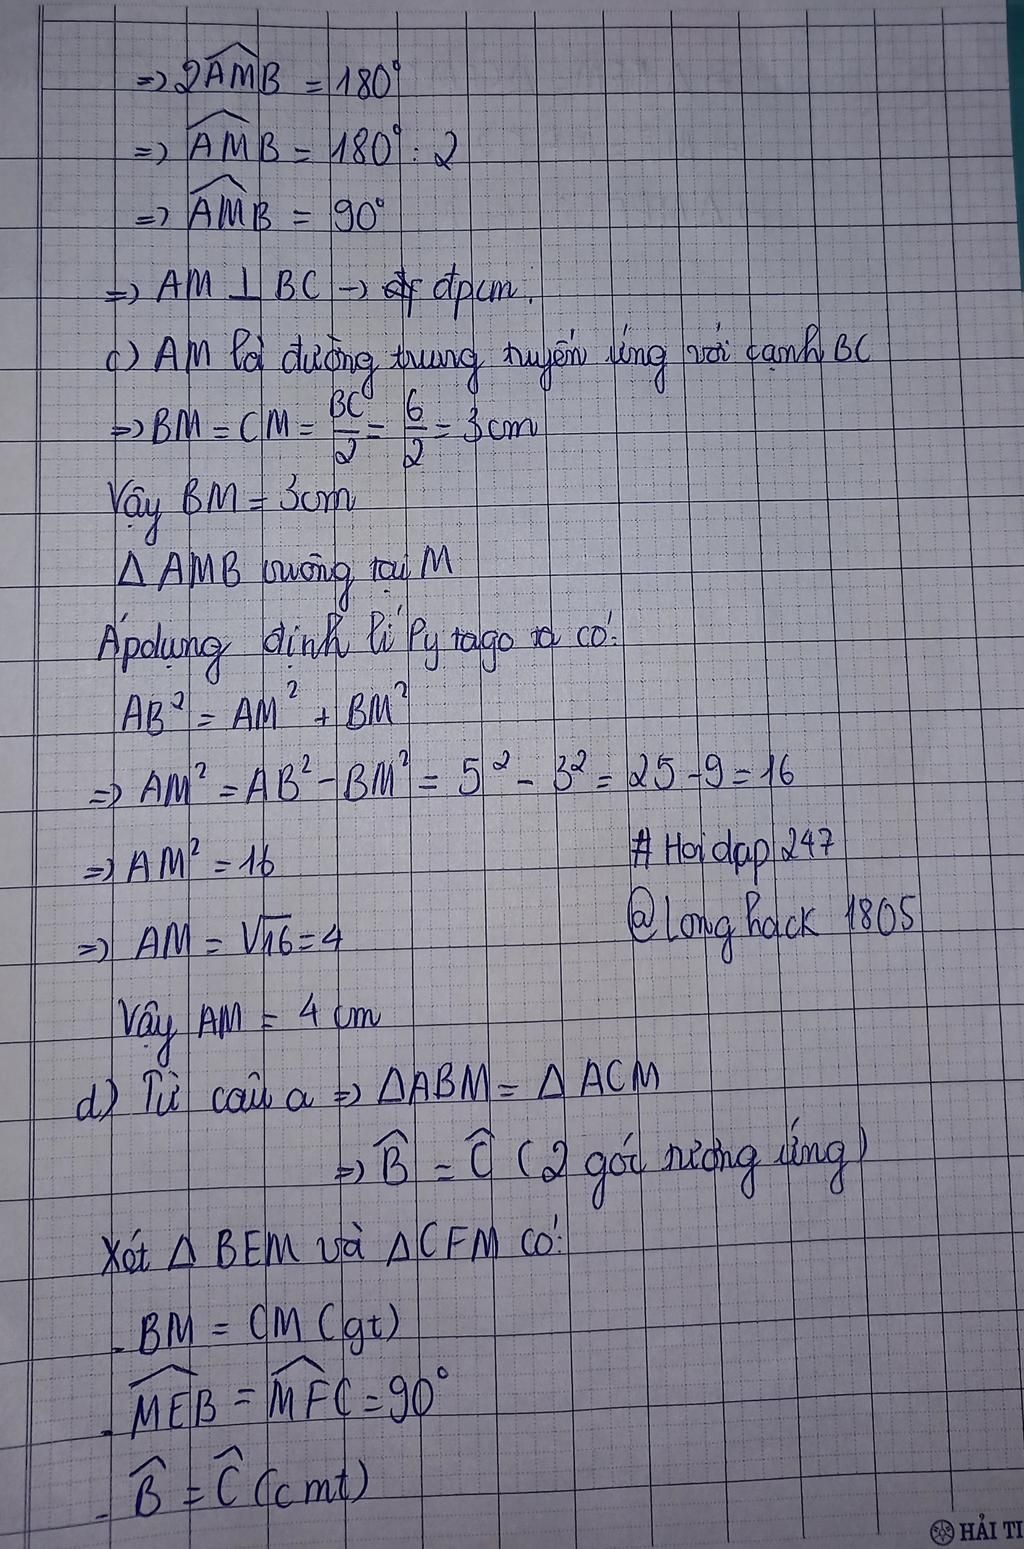 => 2AMB = 180°
=> AMB = 180° : 2
=> AMB = 90°
=> AM ⊥ BC → đpcm.
c) AM là đường trung tuyến ứng với cạnh BC
=> BM = CM = BC/2 = 6/2 = 3cm
Vậy BM = 3cm
Δ AMB vuông tại M
Áp dụng định lí Pytago ta có:
AB² = AM² + BM²
=> AM² = AB² - BM² = 5² - 3² = 25 - 9 = 16
=> AM² = 16
# Hoidap 247
=> AM = √16 = 4
@Longhack 1805
Vậy AM = 4 cm
d) Từ câu a => ΔABM = Δ ACM
=> B̂ = Ĉ (2 góc tương ứng)
Xét Δ BEM và ΔCFM có:
- BM = CM (gt)
- MEB = MFC = 90°
- B̂ = Ĉ (cmt)
HẢI TI